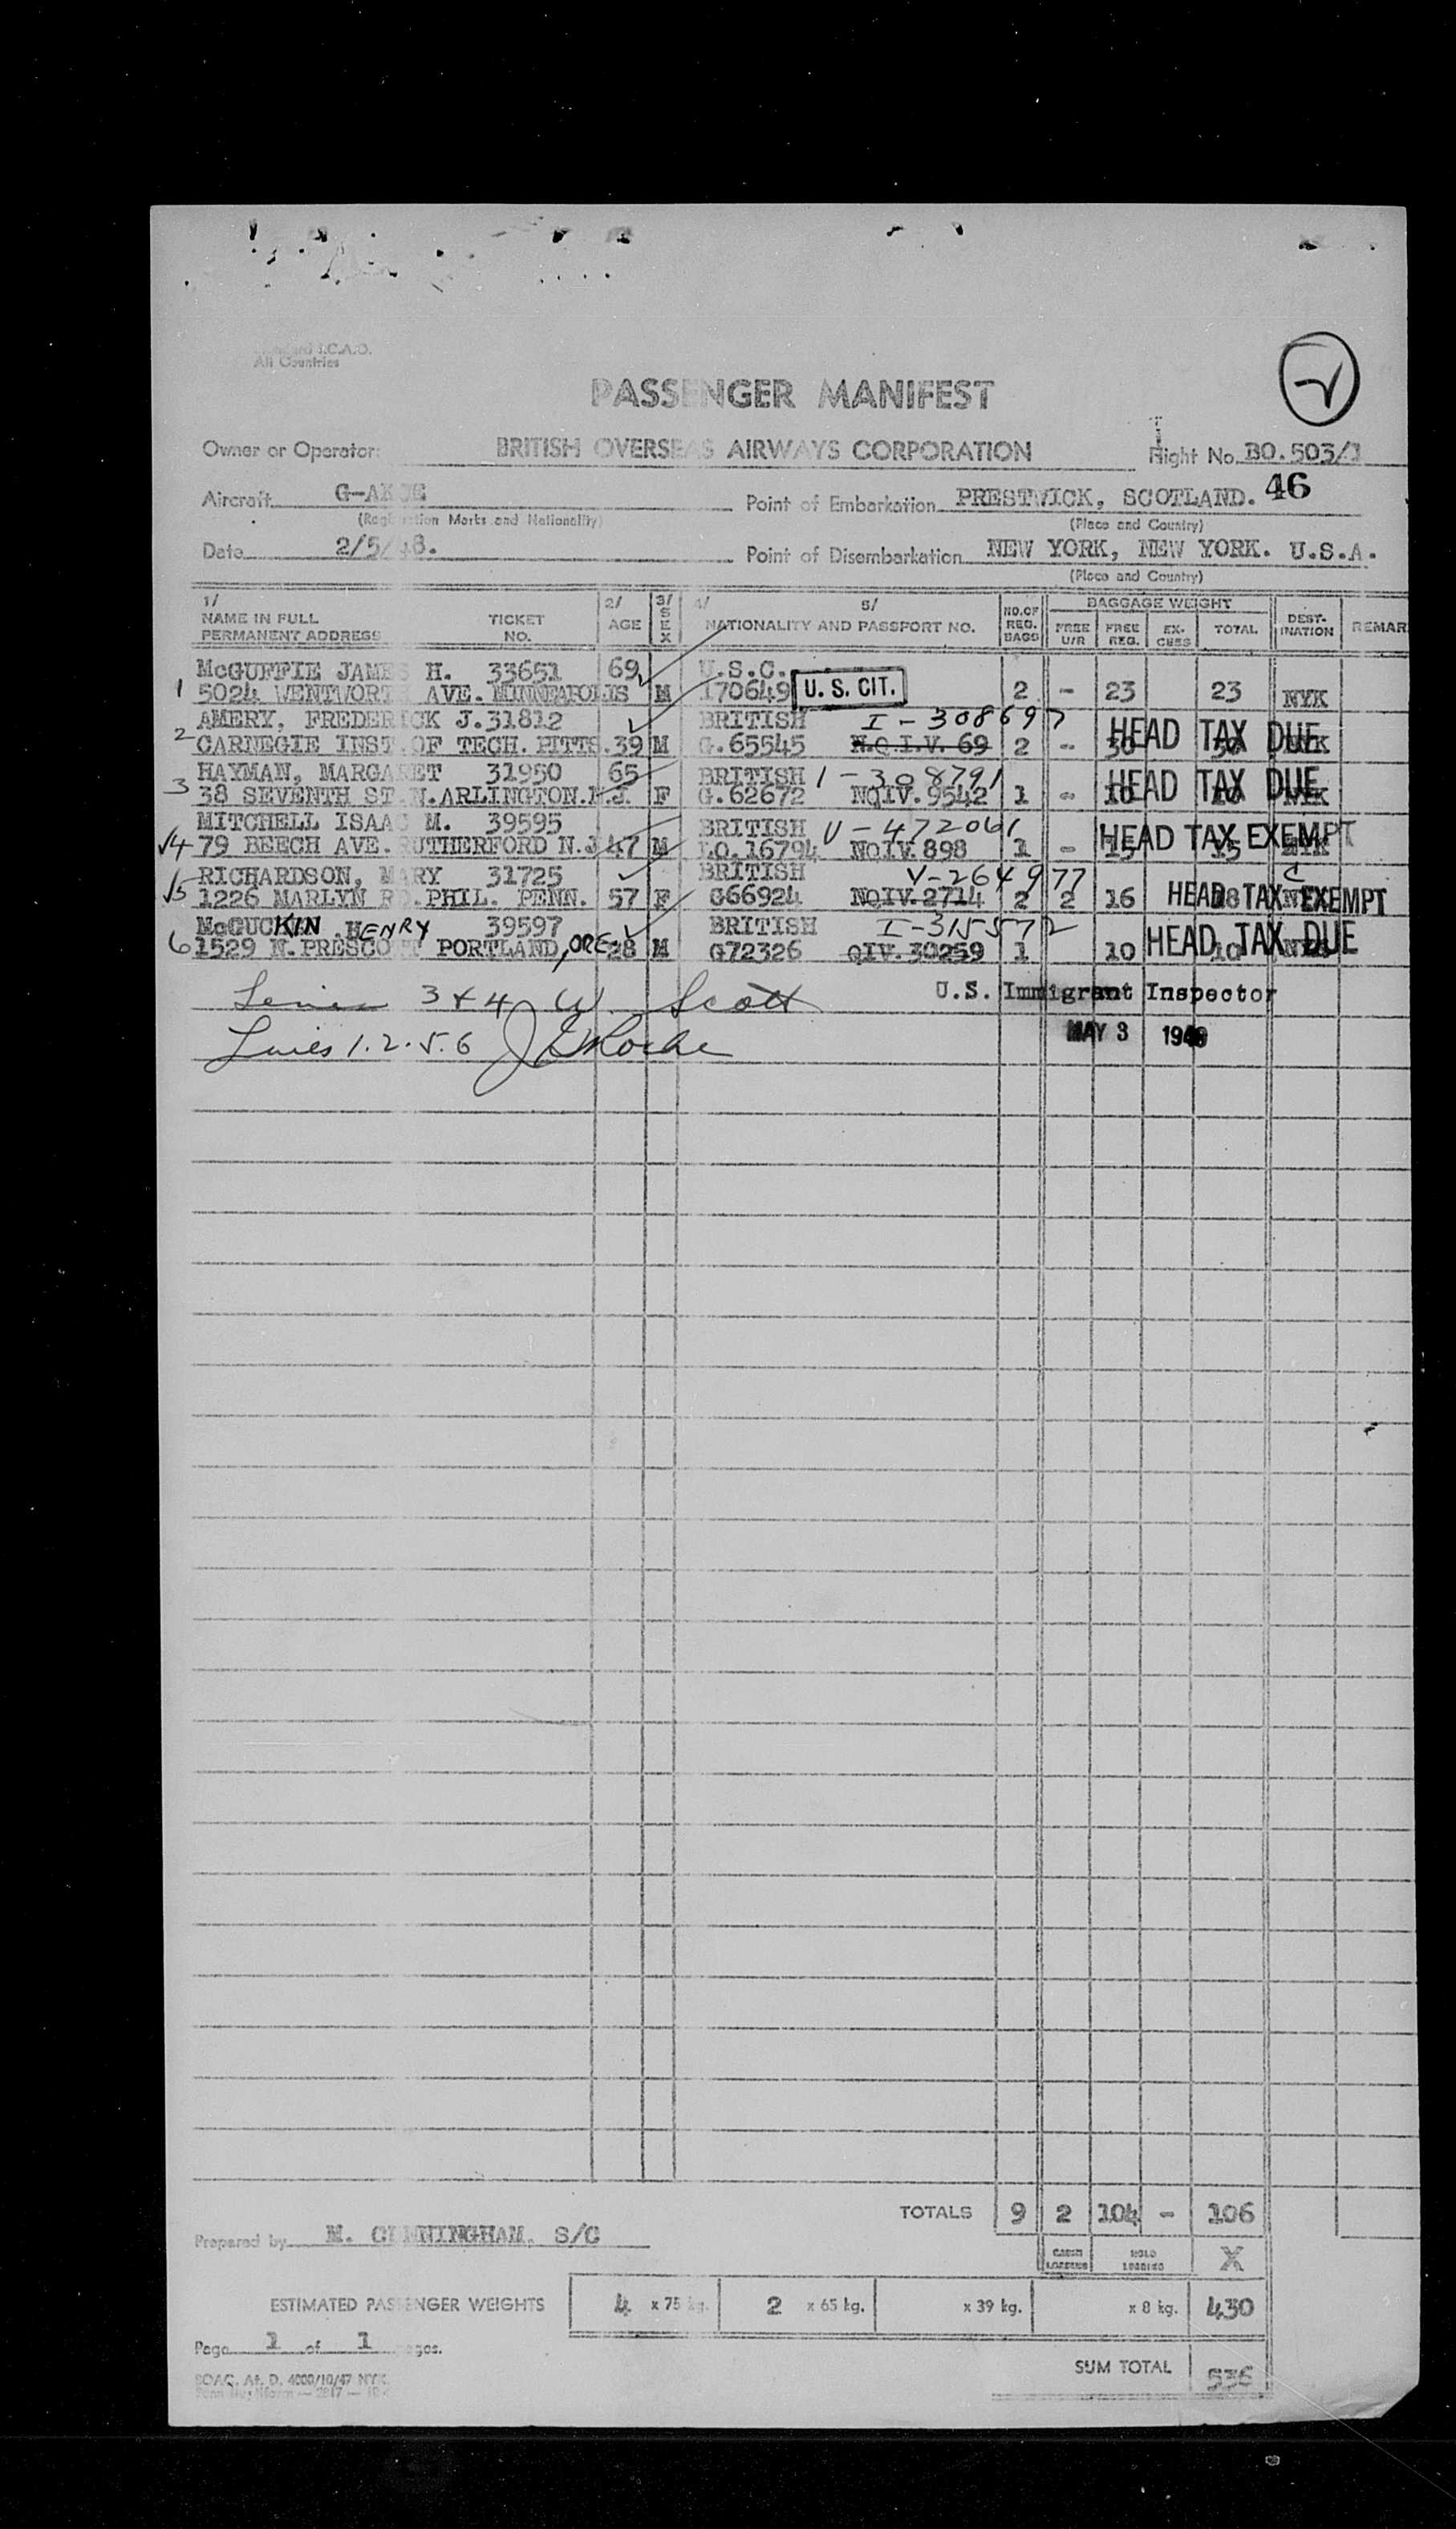 Standard I.C.A.O.
All Countries
PASSENGER MANIFEST
Owner or Operator: BRITISH OVERSEAS AIRWAYS CORPORATION Flight No. BO.503/1
Aircraft G-AK
(Registration Marks and Nationality)
Point of Embarkation PRESTWICK, SCOTLAND. 46
(Place and Country)
Date 2/5/48.
Point of Disembarkation NEW YORK, NEW YORK. U.S.A.
(Place and Country)
1/ 2/ 3/ 4/ 5/ BAGGAGE WEIGHT
NAME IN FULL PERMANENT ADDRESS TICKET NO. AGE SEX NATIONALITY AND PASSPORT NO. NO.OF REG. BAGS FREE U/R FREE REG. EX-CESS TOTAL DEST-INATION REMAR
McGUFFIE JAMES H. 33651 69 U.S.C.
1 5024 WENTWORTH AVE. MINNEAPOLIS M 170649 U. S. CIT. 2 - 23 23 NYK
AMERY, FREDERICK J. 31812 BRITISH I-308697
2 CARNEGIE INST. OF TECH. PITTS. 39 M G.65545 N.Q.I.V. 69 2 - 30 HEAD TAX DUE
HAYMAN, MARGARET 31950 65 BRITISH I-308791
3 38 SEVENTH ST. N.ARLINGTON.N.J. F G.62672 NQIV.9542 1 - 10 HEAD TAX DUE
MITCHELL ISAAC M. 39595 BRITISH V-472061
√4 79 BEECH AVE. RUTHERFORD N.J 47 M LO.16794 NQIV.898 1 - 15 HEAD TAX EXEMPT 15
RICHARDSON, MARY 31725 BRITISH V-264977 C
√5 1226 MARLYN RD. PHIL. PENN. 57 F G66924 NQIV.2714 2 2 16 HEAD TAX EXEMPT 18
McGUCKIN HENRY 39597 BRITISH I-315572
6 1529 N.PRESCOTT PORTLAND, ORE 28 M G72326 QIV.30259 1 10 HEAD TAX DUE 10
Lines 3 & 4 W. Scott U.S. Immigrant Inspector
Lines 1.2.5.6 MAY 3 1948
TOTALS 9 2 104 - 106
Prepared by M. CUNNINGHAM. S/C
CABIN LOADING HOLD LOADING X
ESTIMATED PASSENGER WEIGHTS 4 x 75 kg. 2 x 65 kg. x 39 kg. x 8 kg. 430
Page 1 of 1 pages.
SUM TOTAL 536
BOAC. At. D. 4000/10/47 NYK.